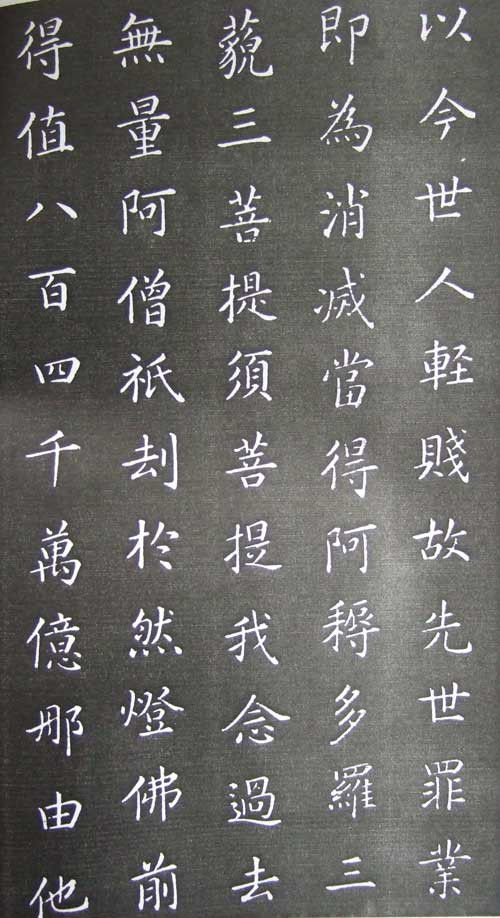 以今世人軽賤故先世罪業
即為消滅當得阿耨多羅三
藐三菩提須菩提我念過去
無量阿僧祇刦於然燈佛前
得值八百四千萬億那由他